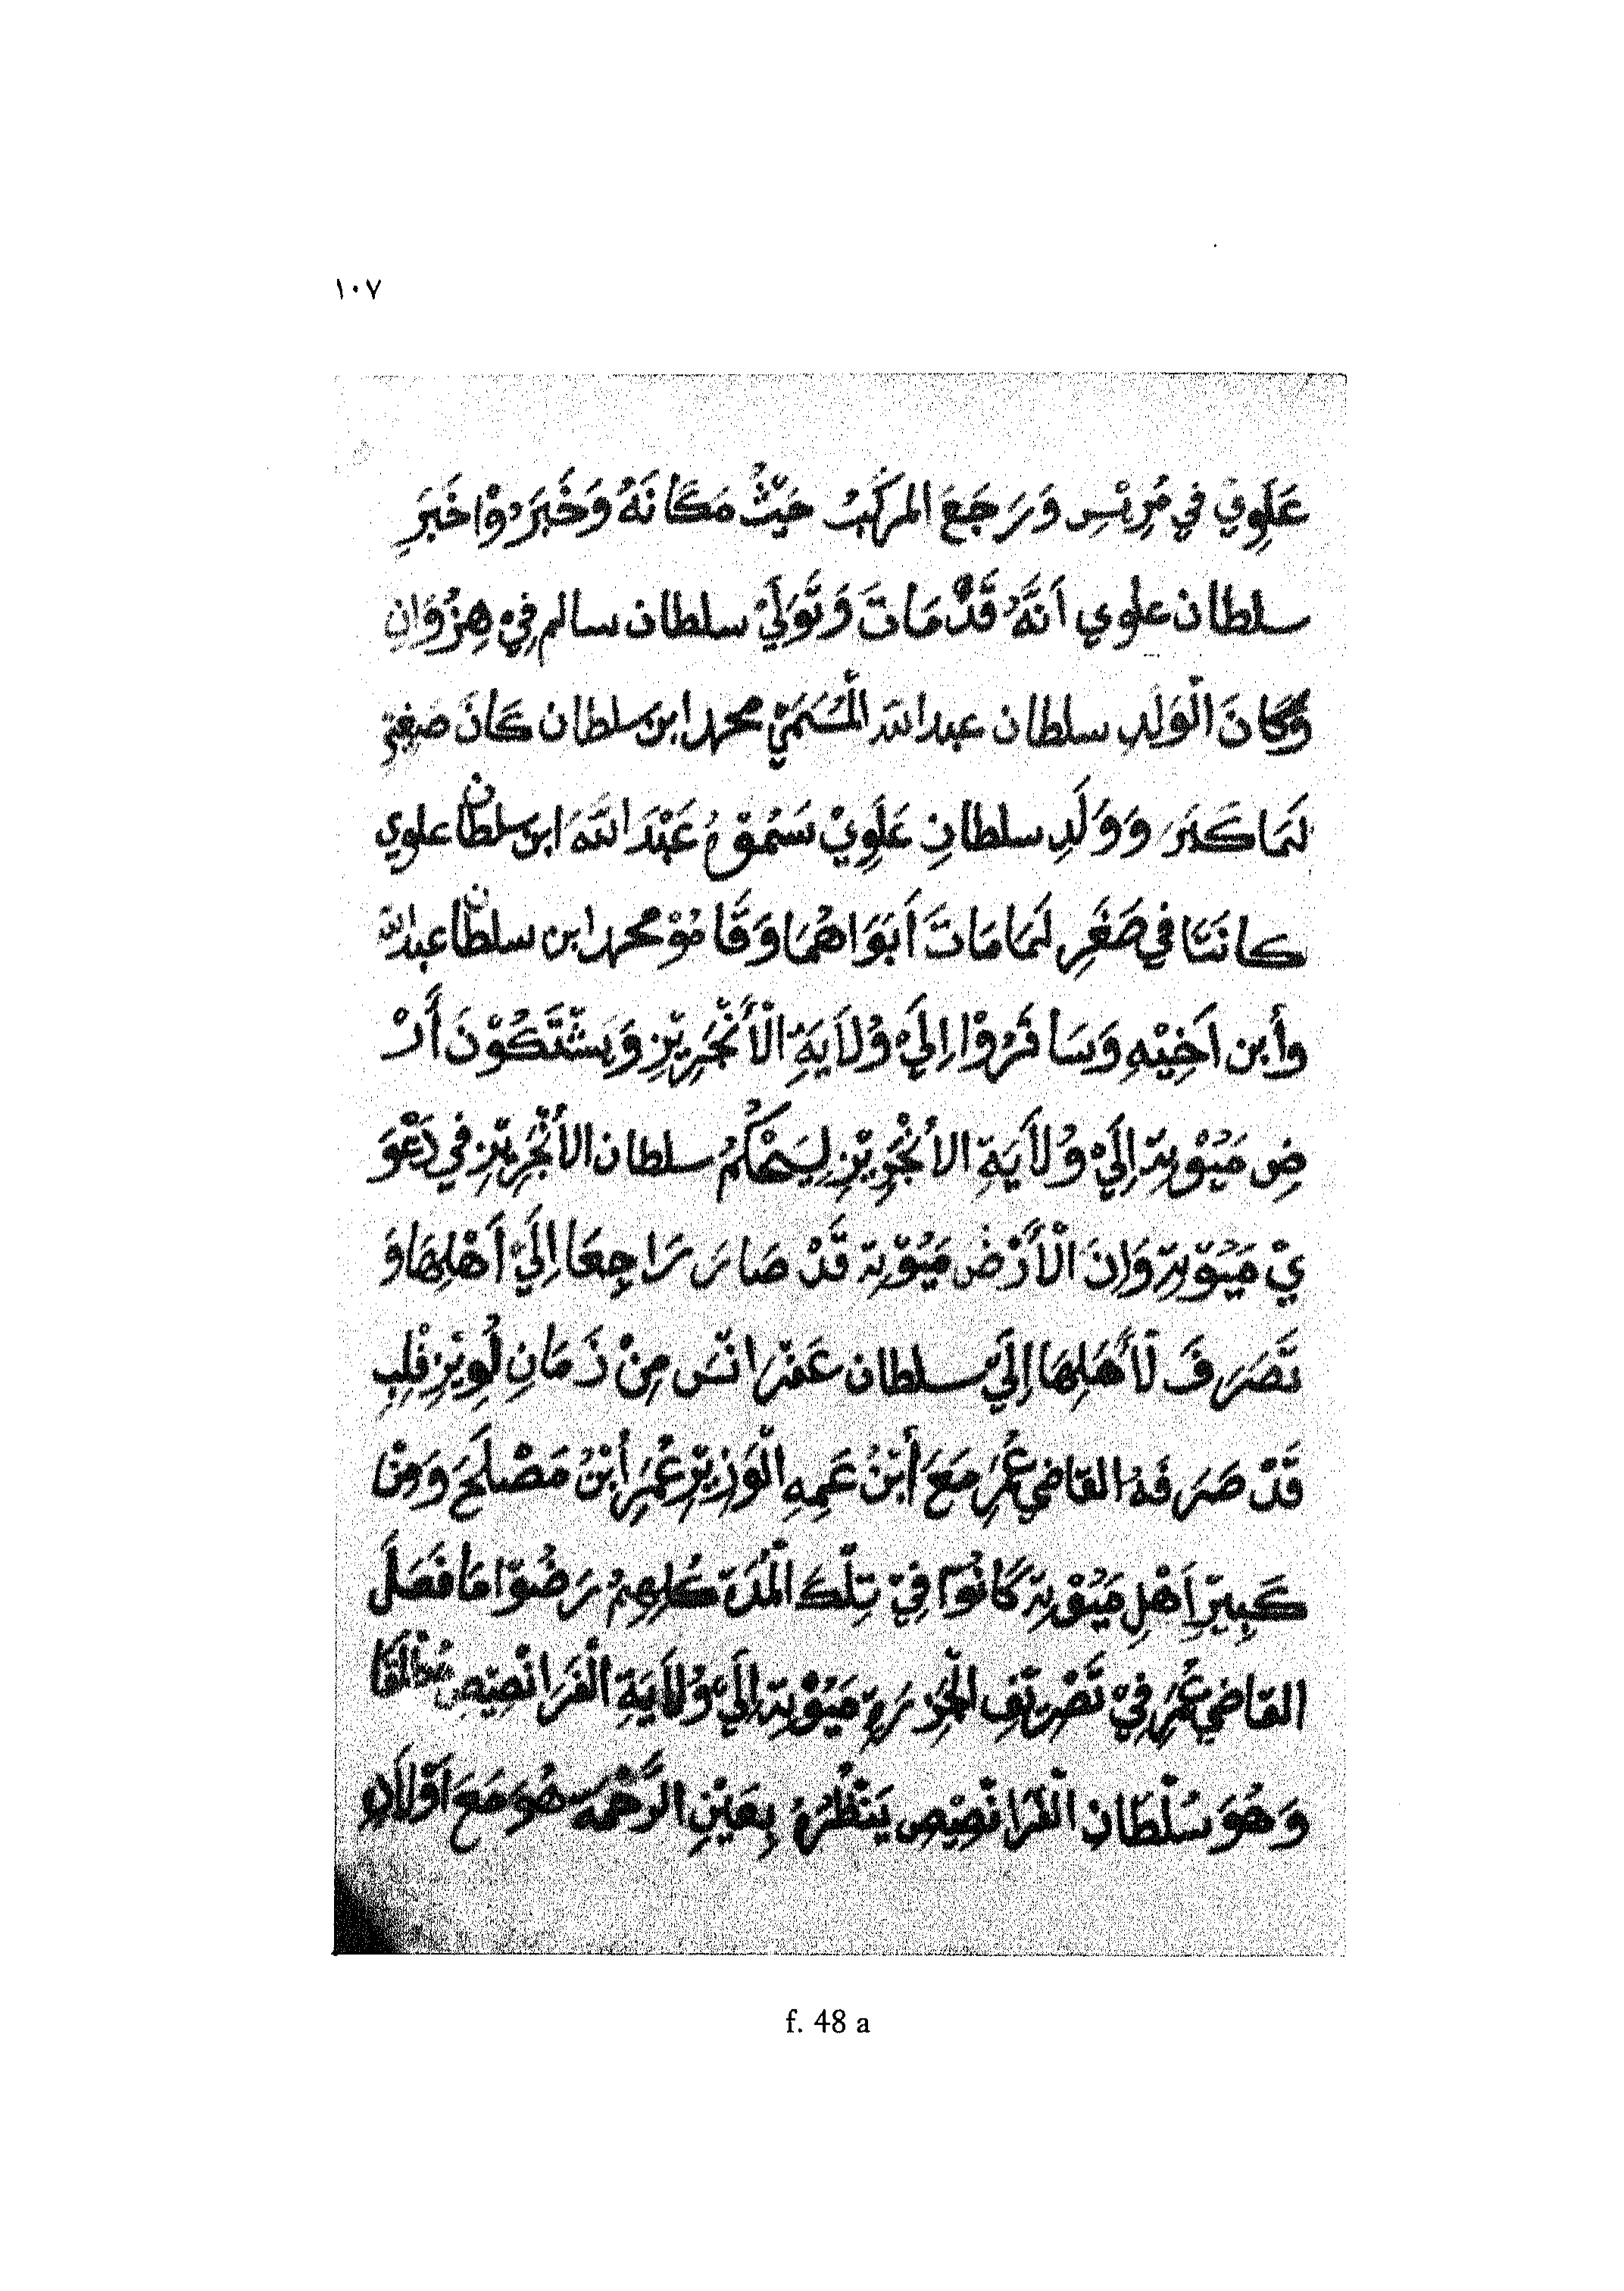 ١٠٧
عَلَوِيْ في مُرِيْسِ وَرَجَعَ المَرْكَبُ حَيْثُ مَكَانَهُ وَخَبَرُوْا خَبَرِ
سلطان علوي اَنَّهُ قَدْ مَاتَ وَتَّوَلَيْ سلطان سالم فِيْ هِنْزُوَانِ
وَكَانَ الْوَلَدِ سلطان عبدالله الْمُسَمَيْ محمد ابن سلطان كَانَ صَغِيْرِ
لَمَا كَبَرَ وَوَلَدِ سلطانِ عَلَوِيْ سَمُوْهُ عَبْدَ اللّٰهَ ابن سلطان علوي
كانَتَا في صَغَرِ لَمَا مَاتَ اَبَوَاهُمَا وَقَامُوْ محمد ابن سلطان عبدالله
وأبن اَخِيْهِ وَسَافَرُوْا اِلَيْ وُلَايَةِ الْأَنْجَرِيْزِ وَيَشْتَكُوْنَ أَرْ
ضِ مَيُوْتِة اِلَيْ وُلَايَةِ الأَنْجَرِيْزِ لِيَحْكُمُ سلطان الأَنْجَرِيْزِ في دَعْوَ
يْ مَيُوْتِة وَاِنَ الْأَرْضْ مَيُوْتِة قَدْ صَارَ رَاجِعَا اِلَيْ اَهْلِهَا وَ
تَصَرَفَ لَأَهَلِهَا اِلَيْ سلطان عَفْرَانَسَ مِنْ زَمَانِ لُوِيْزِ فْلِبِ
قَدْ صَرَفَهُ القاضي عُمَرِ مَعَ أَبْنُ عَمِهِ الْوَزِيْرِ عُمَرِ أَبْنُ مَصْلَحَ وَمِنْ
كَبِيْرِ اَهْلِ مَيُوْتِة كَانُوْا فِيْ تِلْكَ الْمُدَة كُلِهِمْ رَضُوْا مَا فَصَلَ
القاضي عُمَرِ فِيْ تَصْرِيْفِ الْجَزِرَةِ مَيُوْتِة اِلَيْ وُلَايَةِ الْفَرَانْصِيْصِ مُطْلَقَا
وَهُوَ سُلْطَانِ الْفَرَانْصِيْصِ يَنْظُرُهُ بِعَيْنِ الرَّحْمَة هُوَ مَعَ اَوْلَادِ
f. 48 a